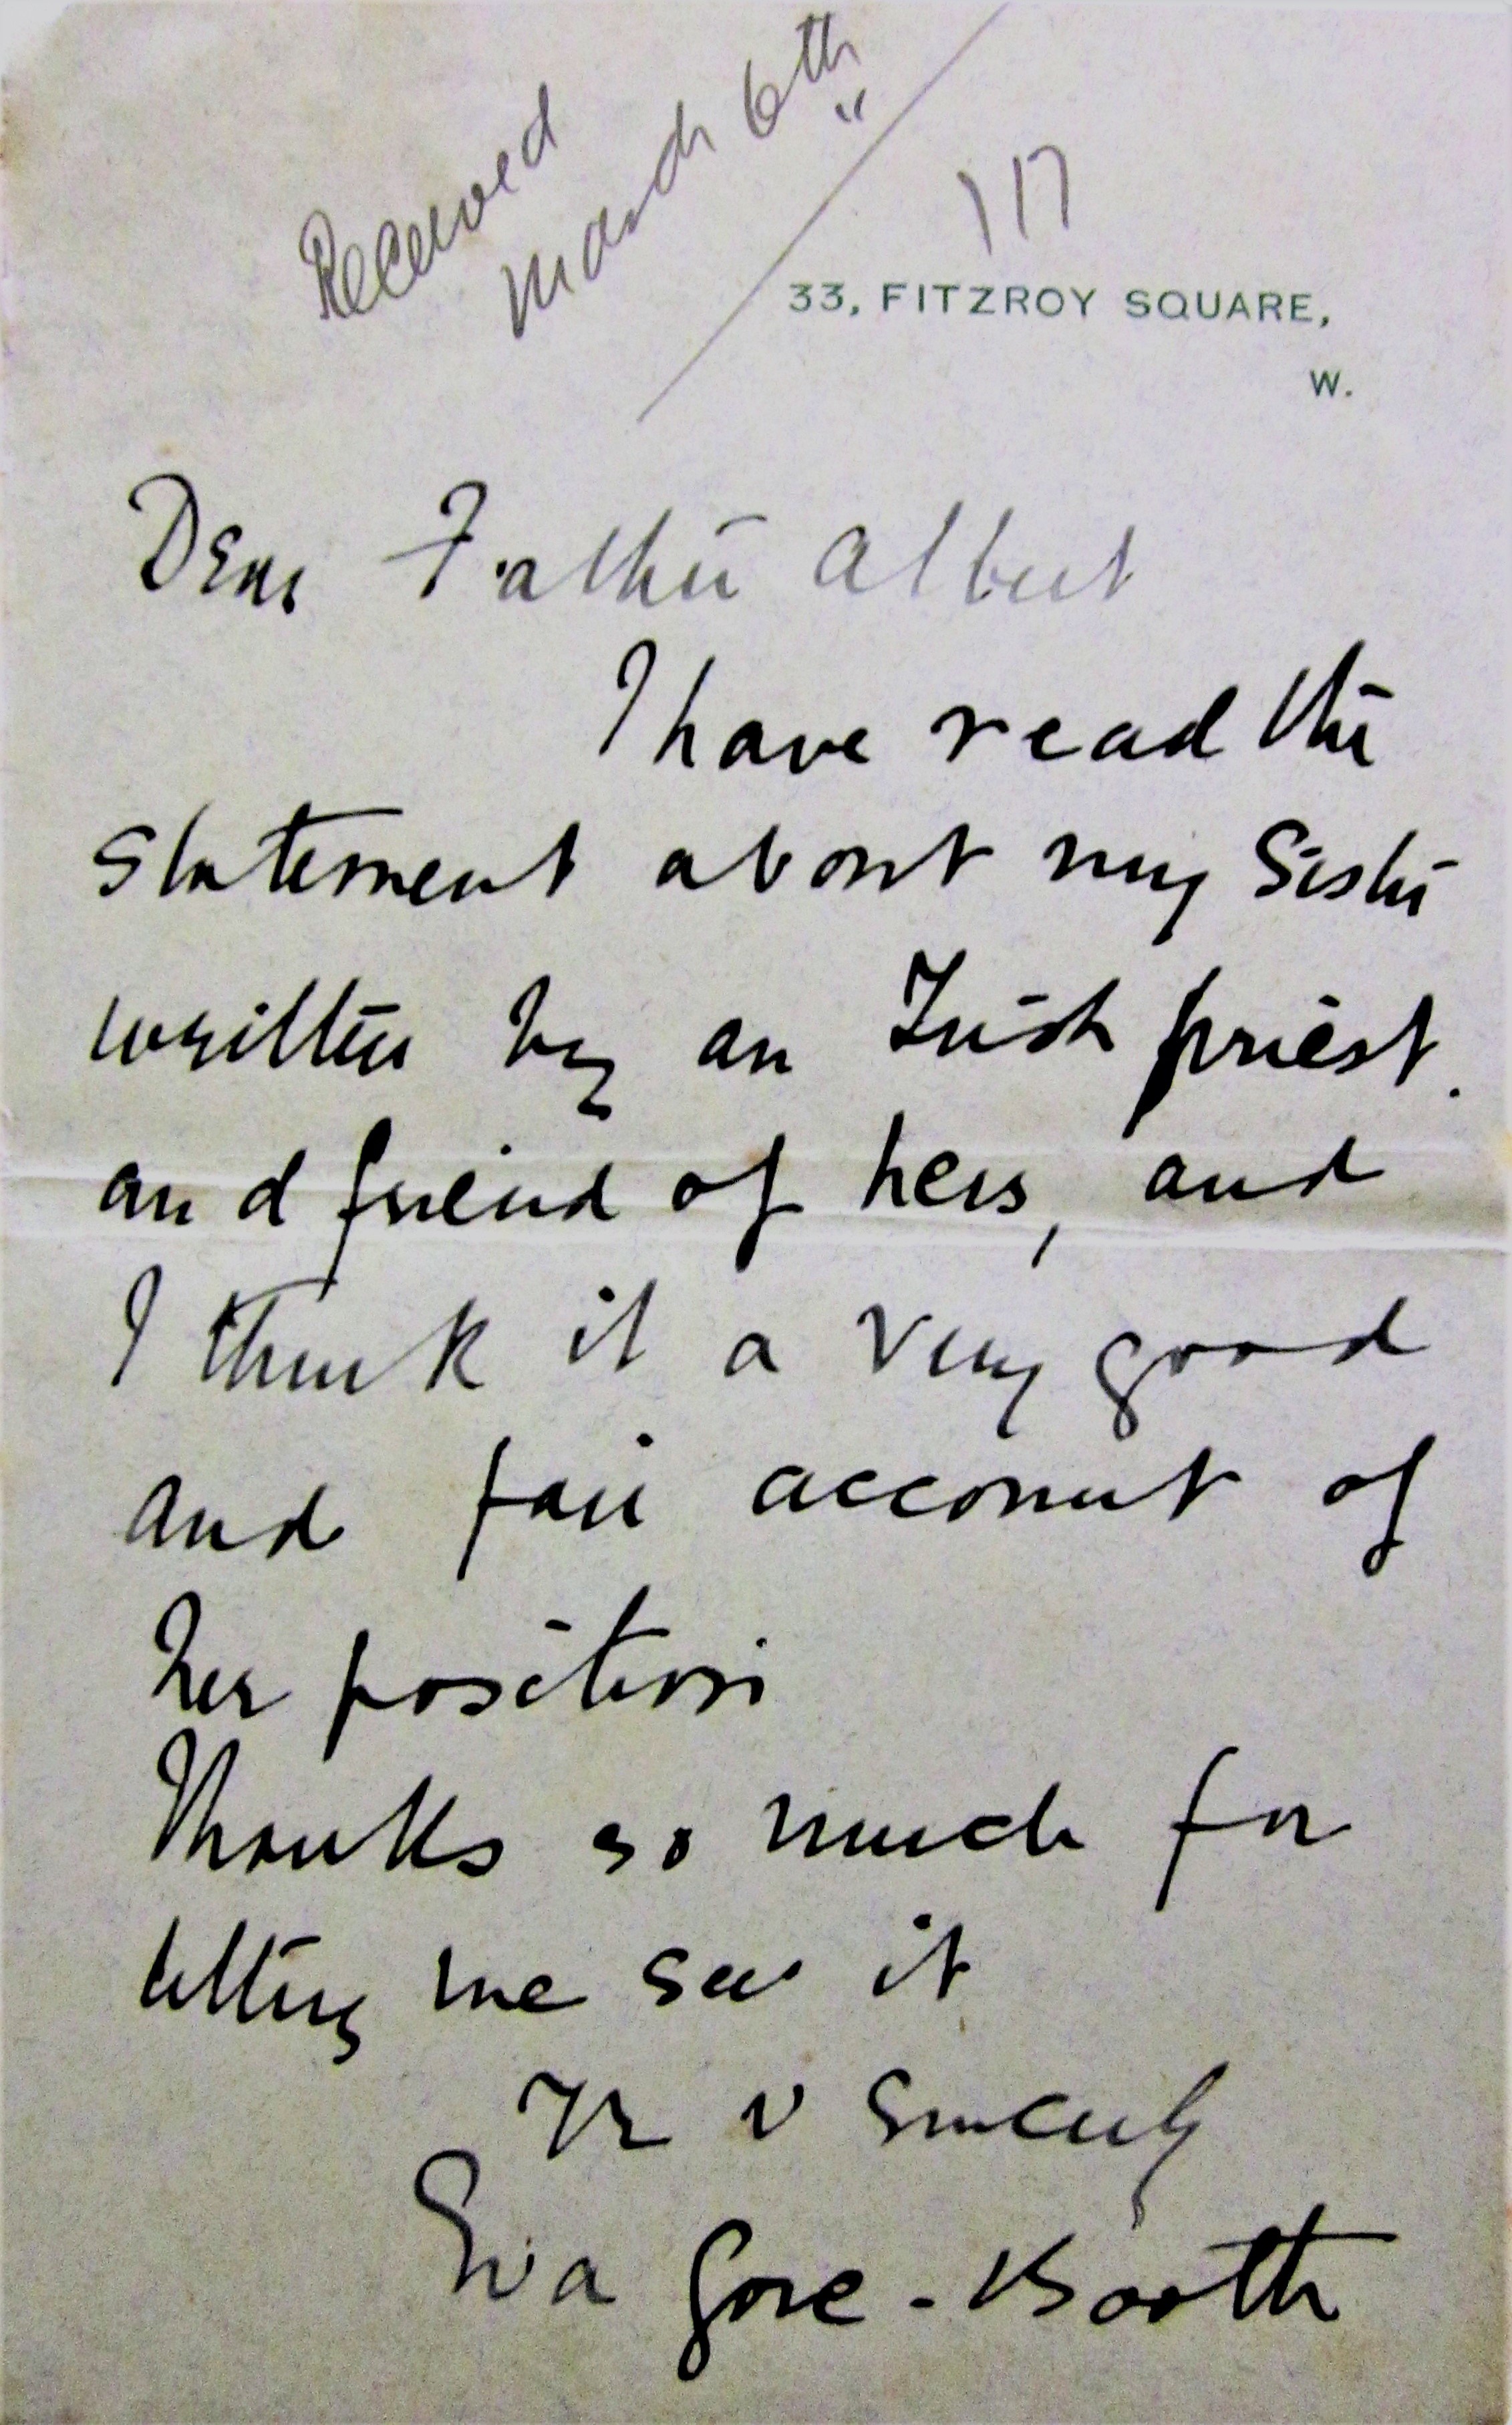 Received
March 6th
/17
33, FITZROY SQUARE,
W.
Dear Father Albert
I have read the
statement about my sister
written by an Irish priest.
and friend of hers, and
I think it a very good
and fair account of
her position
Thanks so much for
letting me see it
Yr v sincerely
Eva Gore-Booth